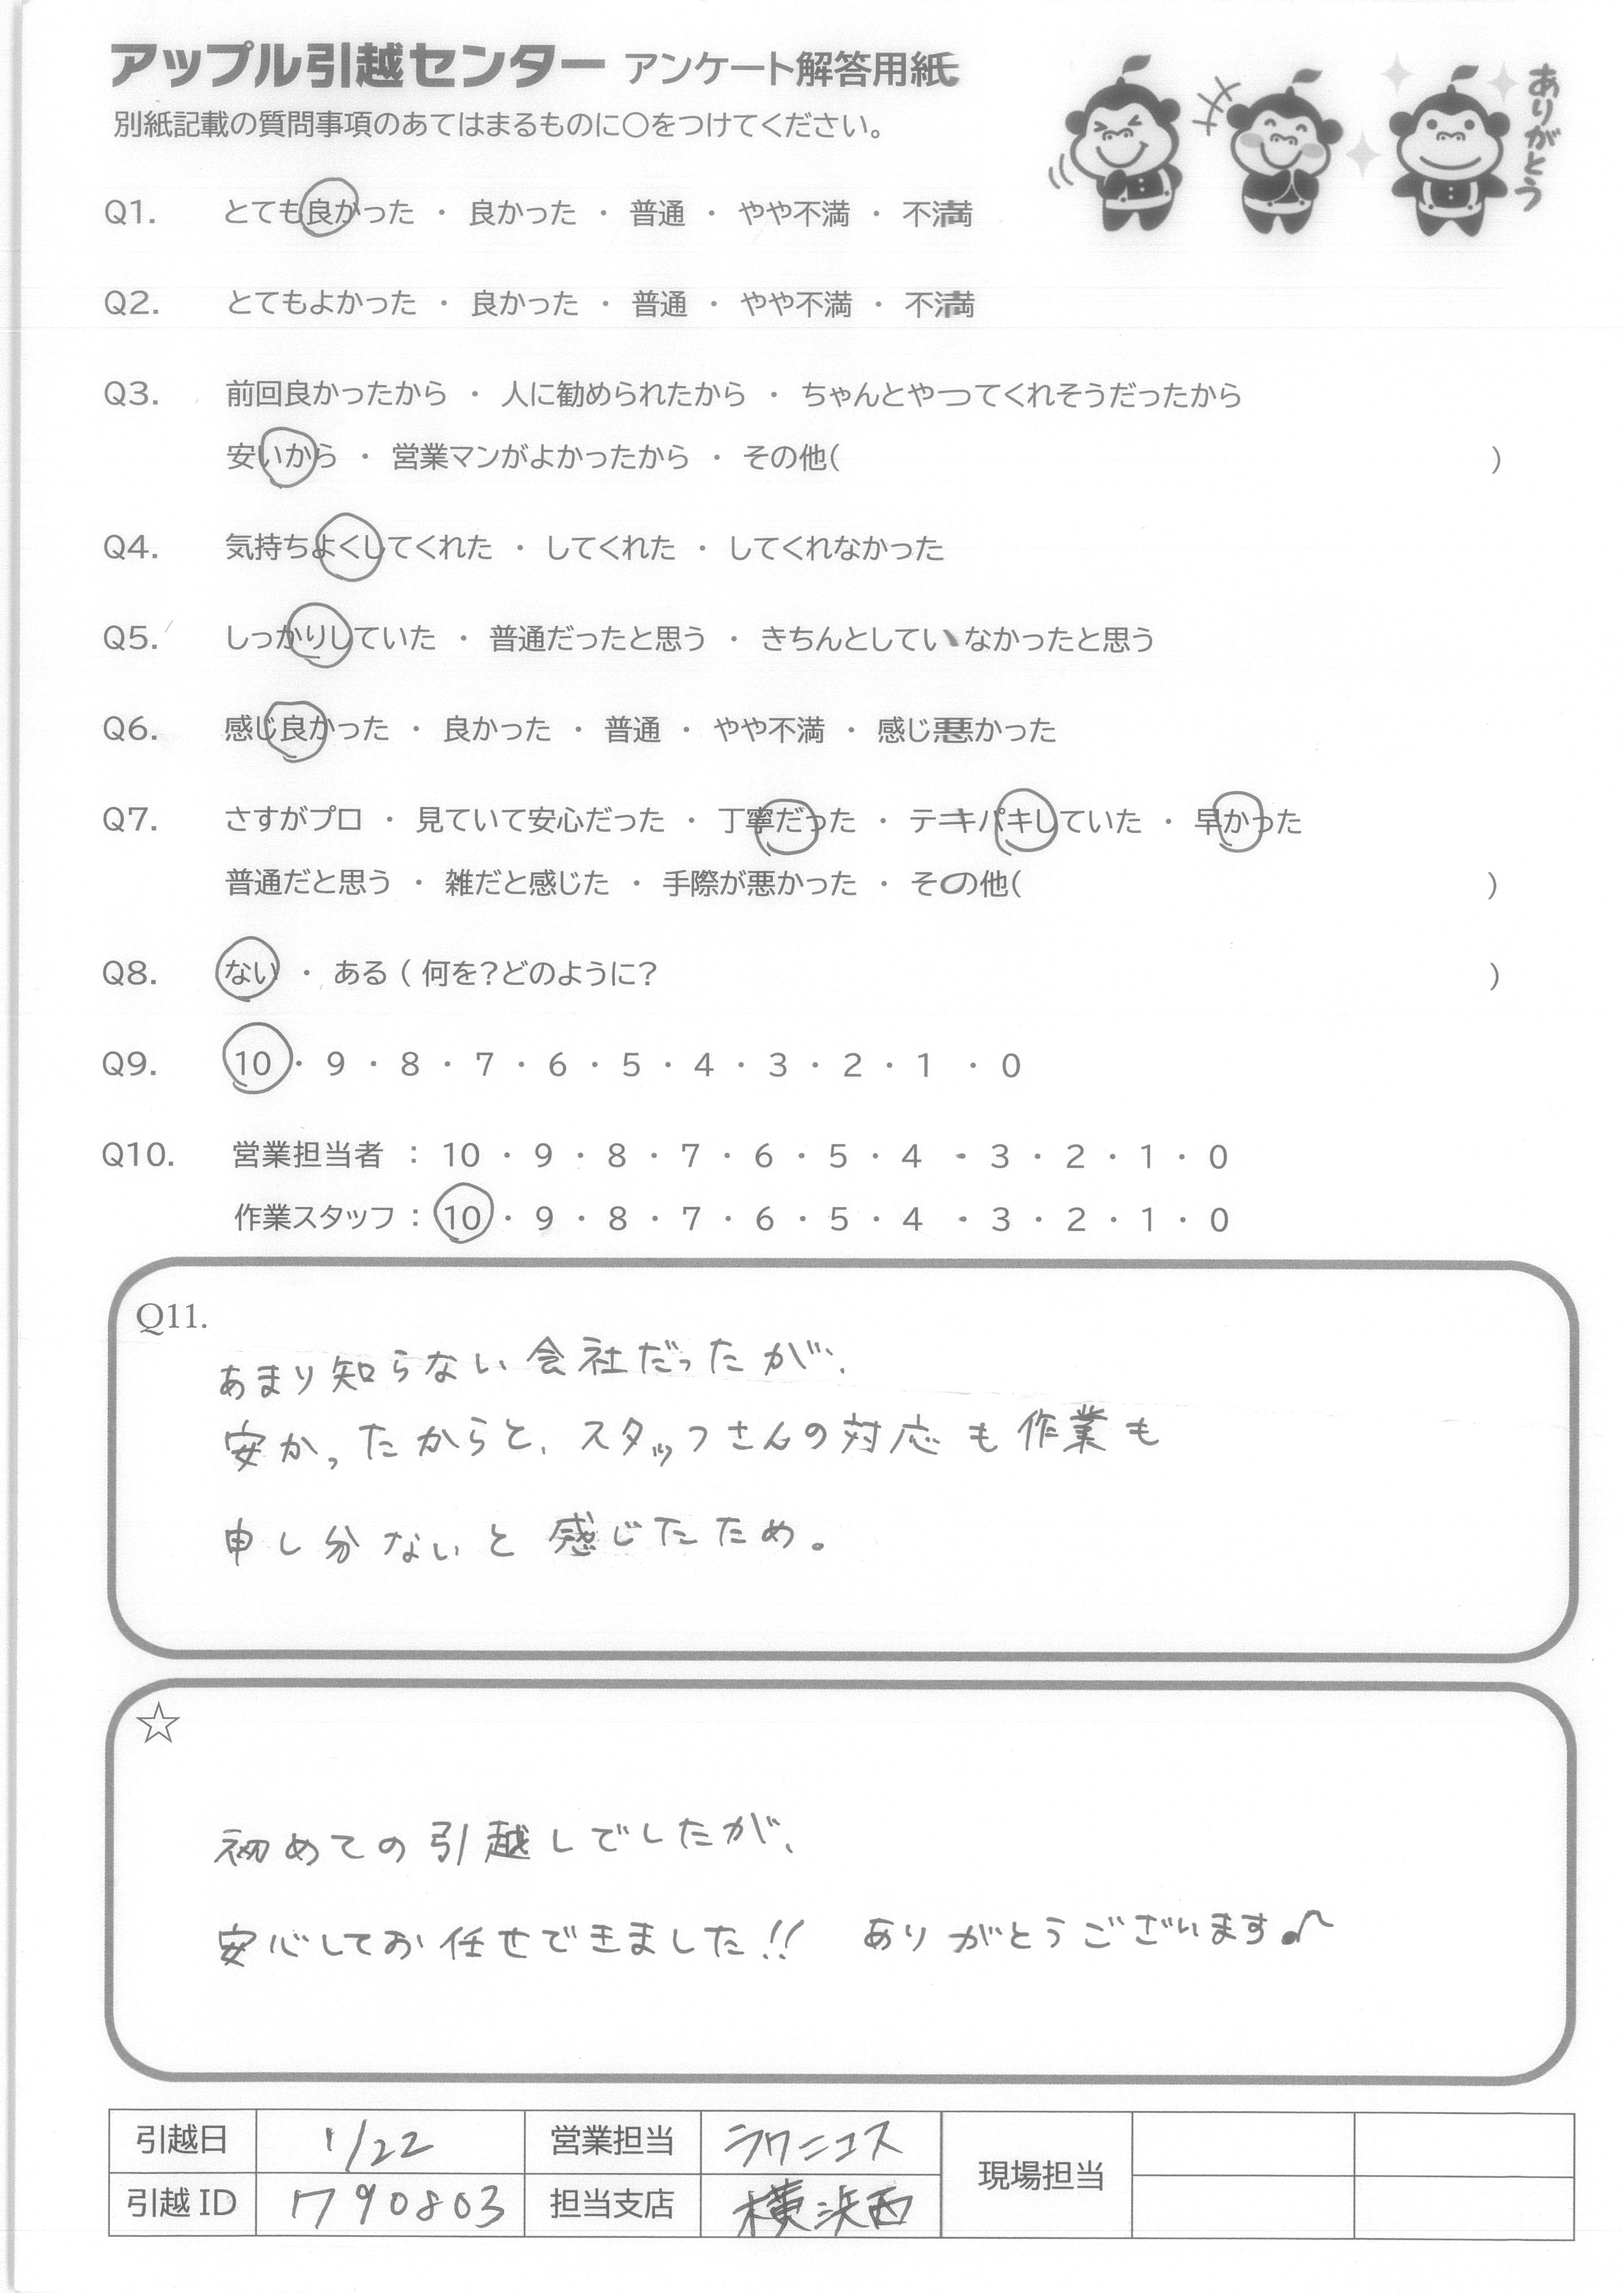 アップル引越センター アンケート解答用紙
別紙記載の質問事項のあてはまるものに○をつけてください。
ありがとう
Q1. とても良かった ・ 良かった ・ 普通 ・ やや不満 ・ 不満
Q2. とてもよかった ・ 良かった ・ 普通 ・ やや不満 ・ 不満
Q3. 前回良かったから ・ 人に勧められたから ・ ちゃんとやってくれそうだったから
安いから ・ 営業マンがよかったから ・ その他( )
Q4. 気持ちよくしてくれた ・ してくれた ・ してくれなかった
Q5. しっかりしていた ・ 普通だったと思う ・ きちんとしていなかったと思う
Q6. 感じ良かった ・ 良かった ・ 普通 ・ やや不満 ・ 感じ悪かった
Q7. さすがプロ ・ 見ていて安心だった ・ 丁寧だった ・ テキパキしていた ・ 早かった
普通だと思う ・ 雑だと感じた ・ 手際が悪かった ・ その他( )
Q8. ない ・ ある ( 何を?どのように? )
Q9. 10 ・ 9 ・ 8 ・ 7 ・ 6 ・ 5 ・ 4 ・ 3 ・ 2 ・ 1 ・ 0
Q10. 営業担当者 : 10 ・ 9 ・ 8 ・ 7 ・ 6 ・ 5 ・ 4 ・ 3 ・ 2 ・ 1 ・ 0
作業スタッフ : 10 ・ 9 ・ 8 ・ 7 ・ 6 ・ 5 ・ 4 ・ 3 ・ 2 ・ 1 ・ 0
Q11.
あまり知らない会社だったが、
安かったからと、スタッフさんの対応も作業も
申し分ないと感じたため。
☆
初めての引越しでしたが、
安心してお任せできました!! ありがとうございます♪
引越日 1/22 営業担当 現場担当
引越ID 1790803 担当支店 横浜西